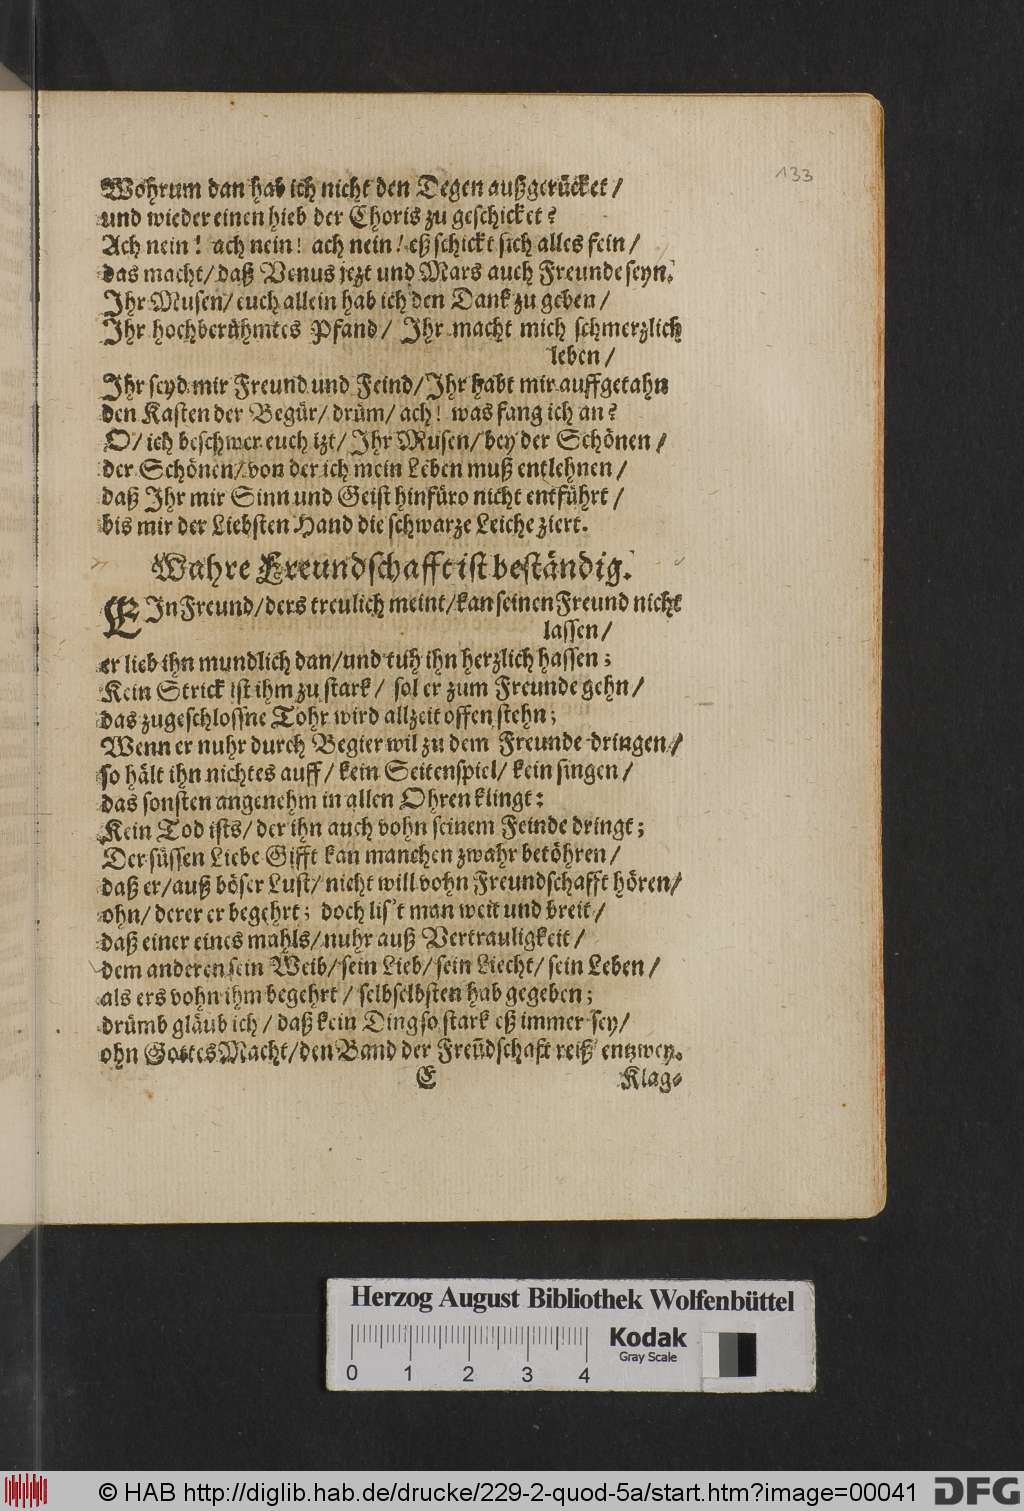 133
Wohrum dan hab ich nicht den Degen außgerücket /
und wieder einen hieb der Choris zu geschicket?
Ach nein! ach nein! ach nein! eß schickt sich alles fein /
das macht / daß Venus jezt und Mars auch Freunde seyn.
Ihr Musen / euch allein hab ich den Dank zu geben /
Ihr hochberühmtes Pfand / Ihr macht mich schmerzlich
leben /
Ihr seyd mir Freund und Feind / Ihr habt mir auffgetahn
den Kasten der Begür / drüm / ach! was fang ich an?
O / ich beschwer euch izt / Ihr Musen / bey der Schönen /
der Schönen / von der ich mein Leben muß entlehnen /
daß Ihr mir Sinn und Geist hinfüro nicht entführt /
bis mir der Liebsten Hand die schwarze Leiche ziert.
Wahre Freundschafft ist beständig.
EIn Freund / ders treulich meint / kan seinen Freund nicht
lassen /
er lieb ihn mundlich dan / und tuh ihn herzlich hassen;
Kein Strick ist ihm zu stark / sol er zum Freunde gehn /
das zugeschlossne Tohr wird allzeit offen stehn;
Wenn er nuhr durch Begier wil zu dem Freunde dringen /
so hält ihn nichtes auff / kein Seitenspiel / kein singen /
das sonsten angenehm in allen Ohren klingt:
Kein Tod ists / der ihn auch vohn seinem Feinde dringt;
Der süssen Liebe Gifft kan manchen zwahr betöhren /
daß er / auß böser Lust / nicht will vohn Freundschafft hören /
ohn / derer er begehrt; doch lis't man weit und breit /
daß einer eines mahls / nuhr auß Vertrauligkeit /
dem anderen sein Weib / sein Lieb / sein Liecht / sein Leben /
als ers vohn ihm begehrt / selbselbsten hab gegeben;
drümb gläub ich / daß kein Ding so stark eß immer sey /
ohn Gottes Macht / den Band der Freūdschaft reiß entzwey.
E Klag-
Herzog August Bibliothek Wolfenbüttel
0 1 2 3 4
Kodak
Gray Scale
© HAB http://diglib.hab.de/drucke/229-2-quod-5a/start.htm?image=00041
DFG